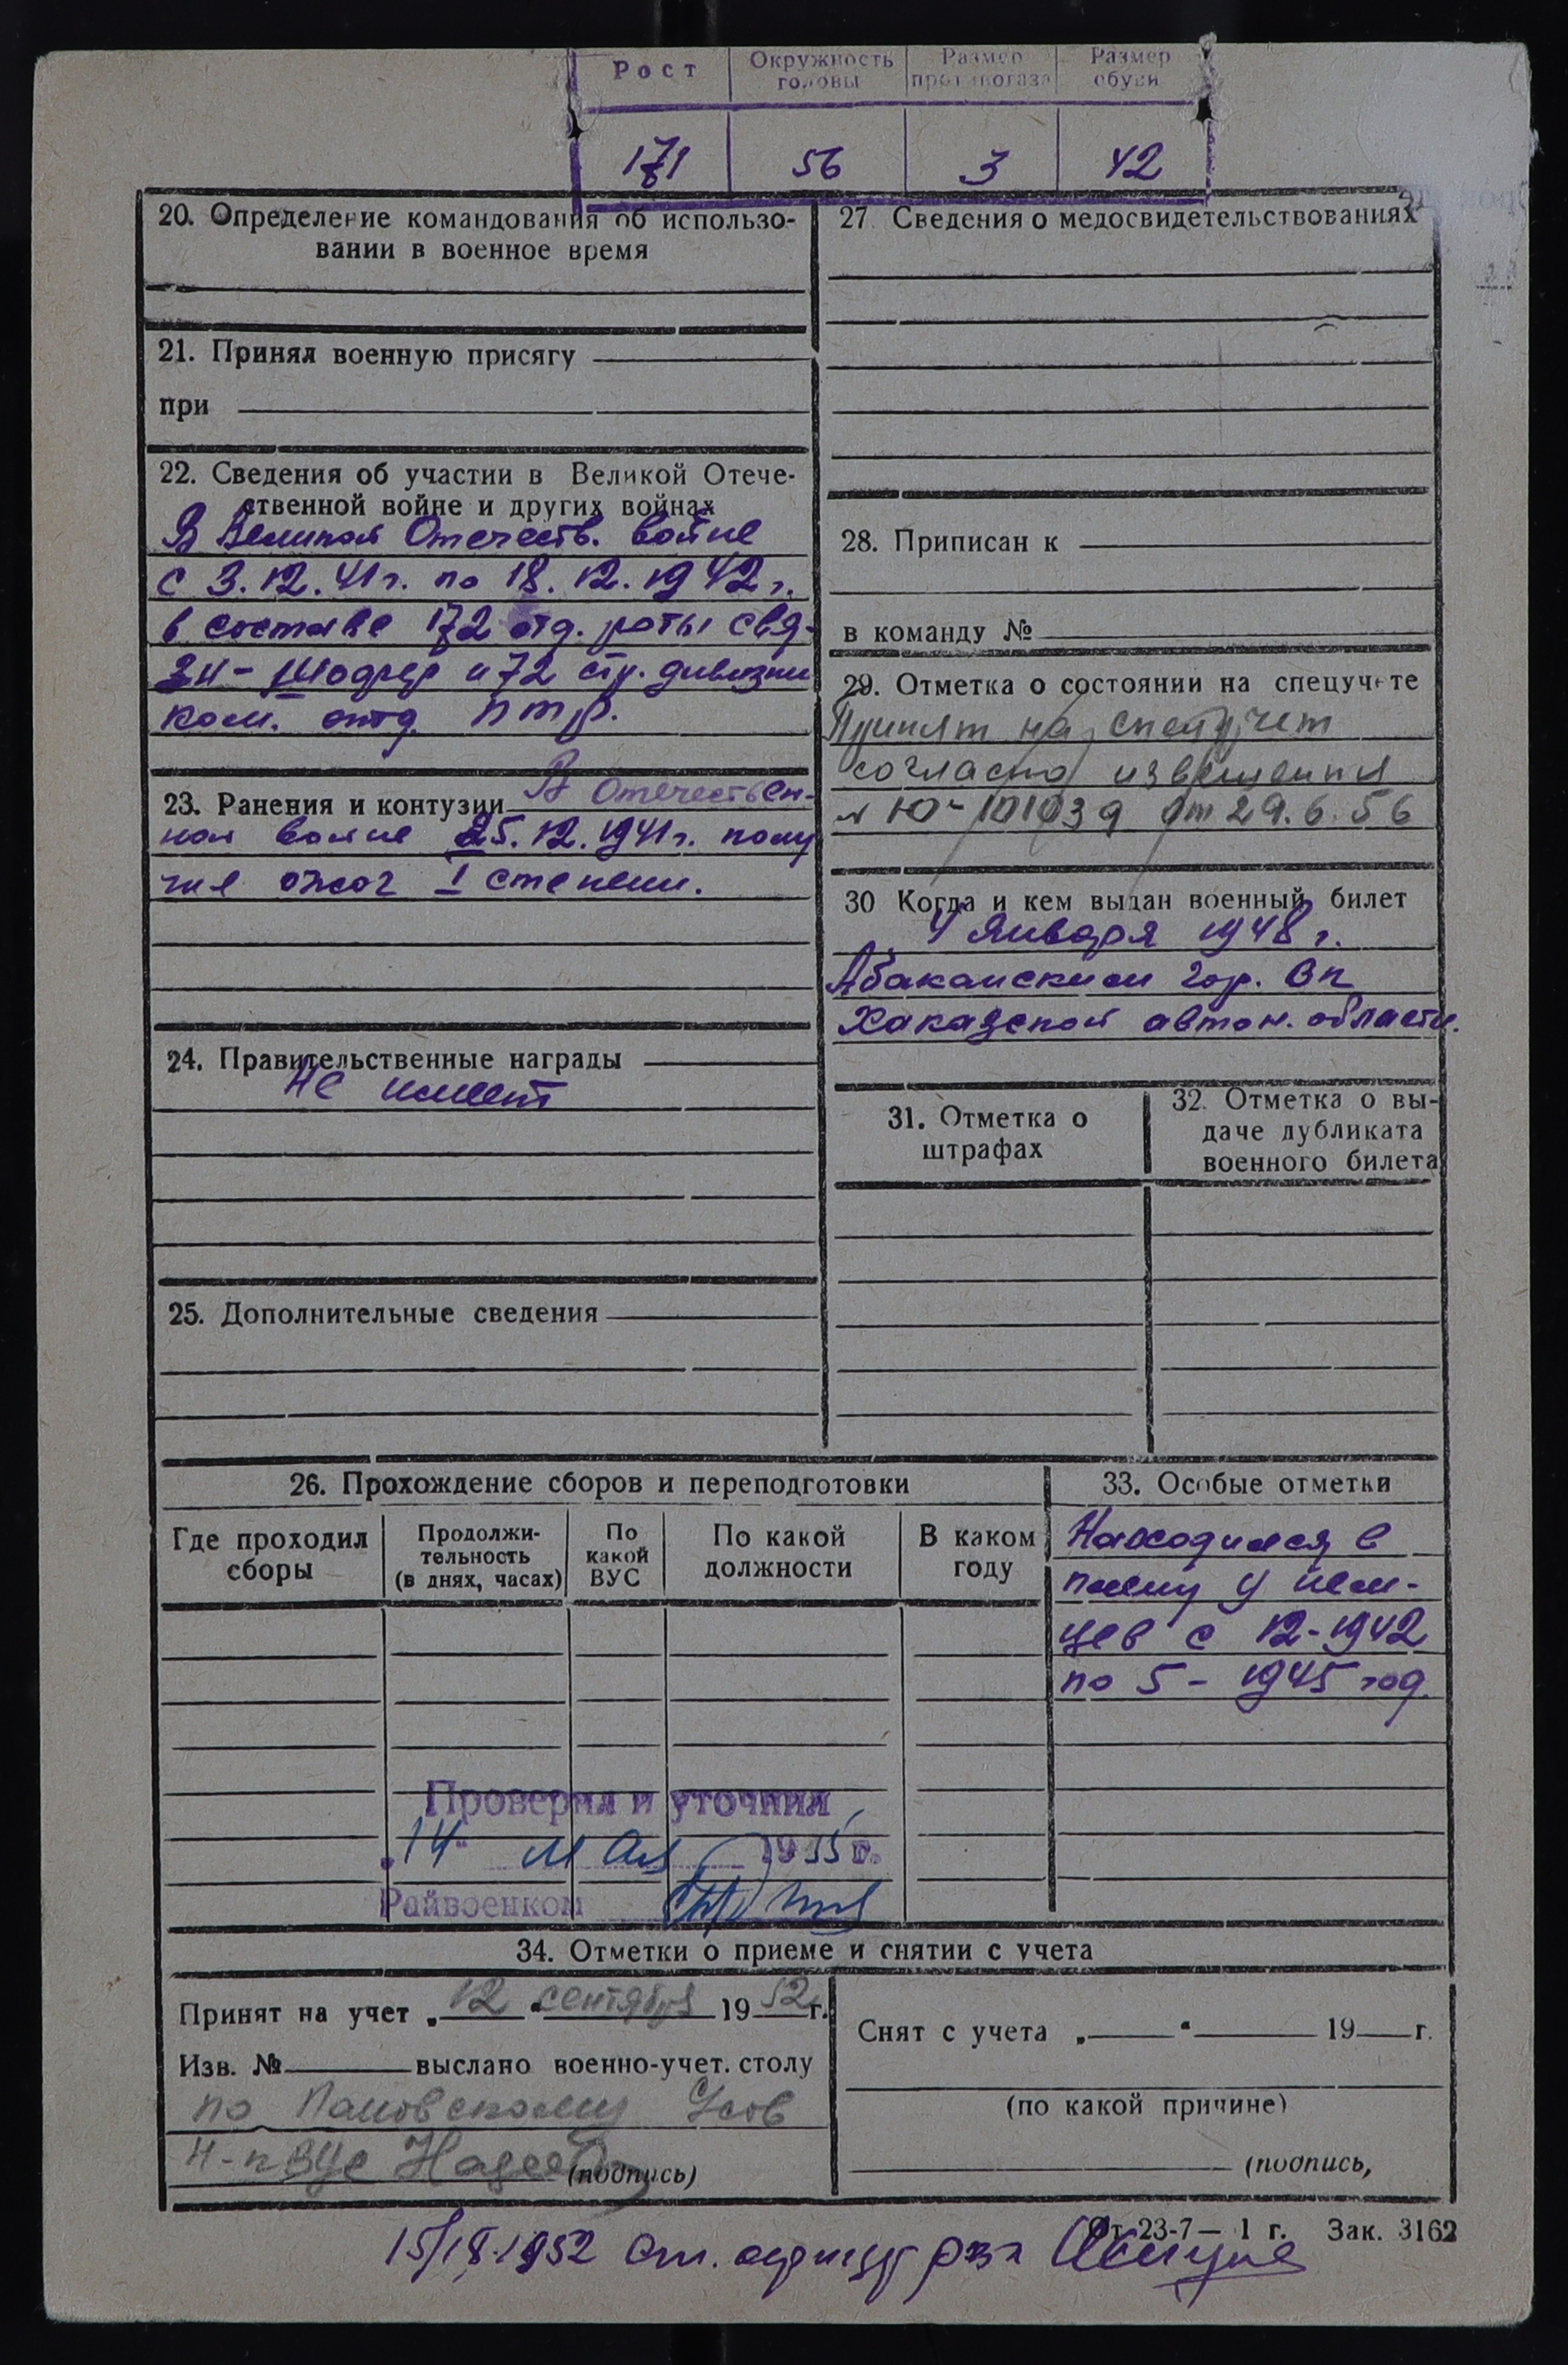 Рост Окружность головы Размер противогаза Размер обуви
171 56 3 42
20. Определение командования об использо-
вании в военное время
21. Принял военную присягу
при
22. Сведения об участии в Великой Отече-
ственной войне и других войнах
В Великой Отечеств. войне
с 3.12.41г. по 18.12.1942г.
в составе 172 отд. роты свя-
зи- и 72 стр. дивизии
ком. отд. птр.
23. Ранения и контузии В Отечествен-
ной войне 25.12.1941г. полу
чил ожог I степени.
24. Правительственные награды
Не имеет
25. Дополнительные сведения
27 Сведения о медосвидетельствованиях
28. Приписан к
в команду №
29. Отметка о состоянии на спецучете
Принят на спецучет
согласно извещения
№ Ю-101039 от 29.6.56
30 Когда и кем выдан военный билет
4 января 1948 г.
Абаканским гор. Вк
Хакасской автон. области.
31. Отметка о
штрафах
32. Отметка о вы-
даче дубликата
военного билета
26. Прохождение сборов и переподготовки
Где проходил
сборы
Продолжи-
тельность
(в днях, часах)
По
какой
ВУС
По какой
должности
В каком
году
33. Особые отметки
Находился в
плену у нем-
цев с 12-1942
по 5- 1945 год.
Проверил и уточнил
„14" мая 1955 г.
Райвоенком
34. Отметки о приеме и снятии с учета
Принят на учет „12" сентября 1952г.
Изв. № выслано военно-учет. столу
по Усов
(подпись)
Снят с учета „ " 19 г.
(по какой причине)
(подпись,
От-23-7— 1 г. Зак. 3162